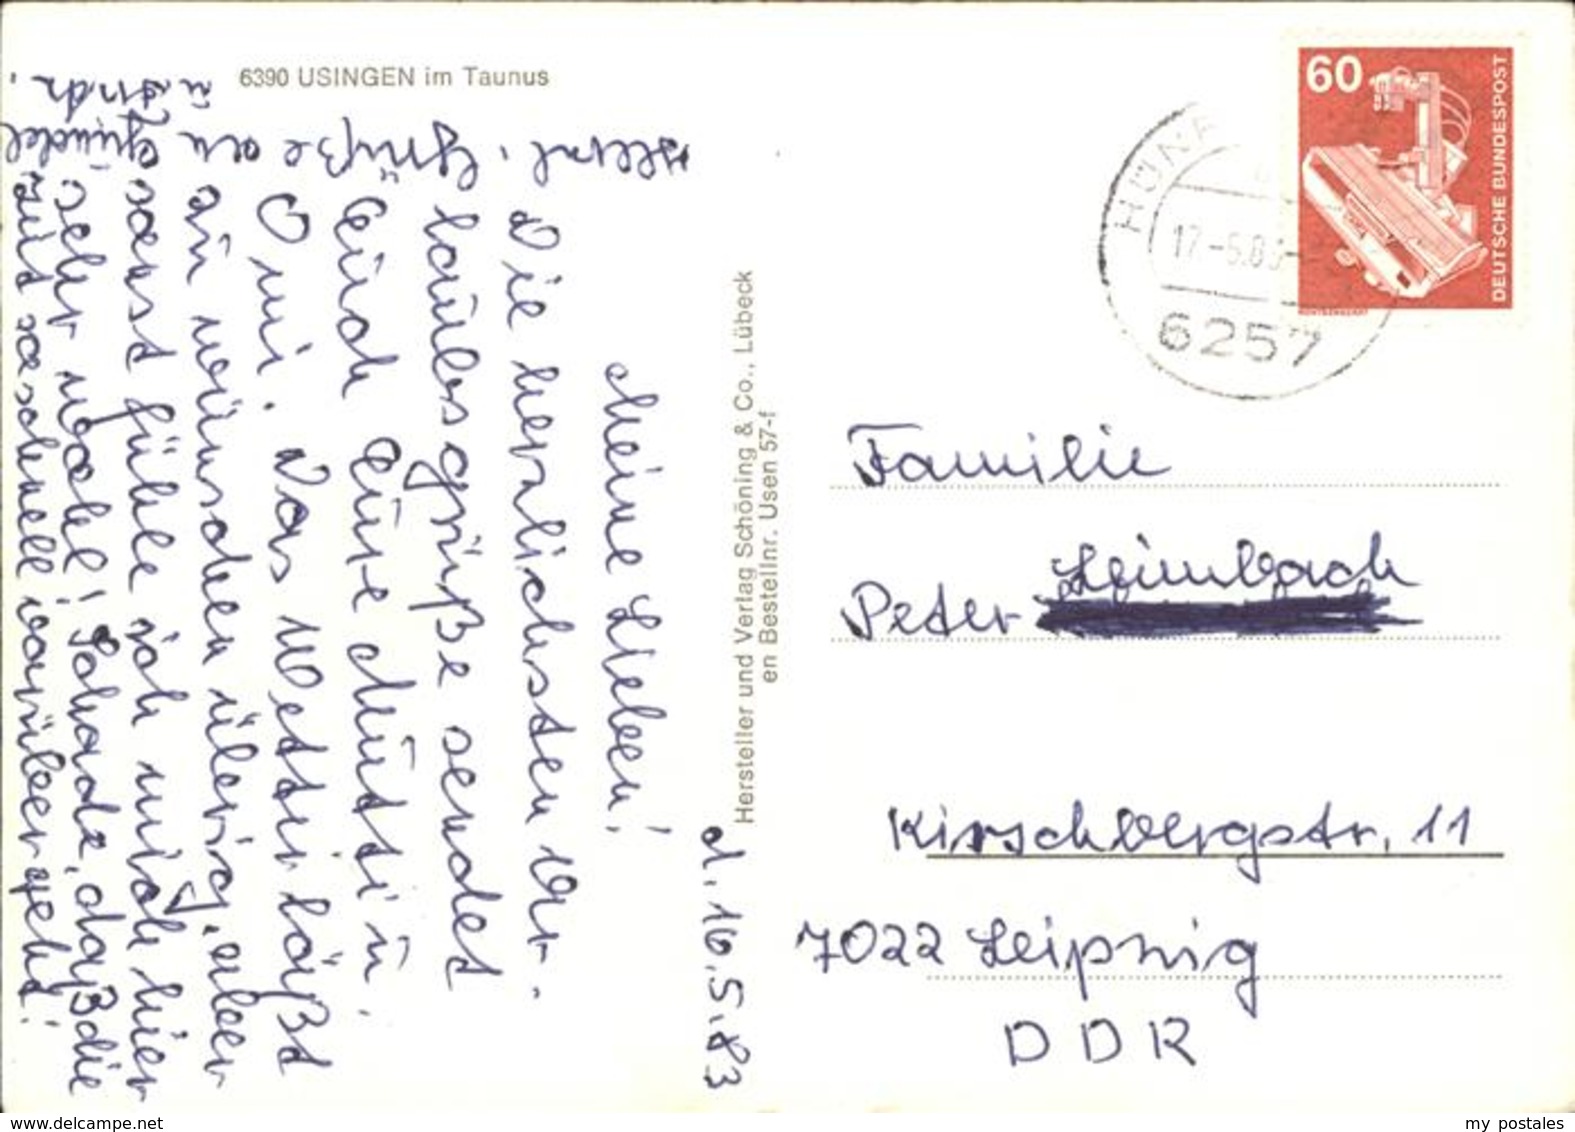 6390 USINGEN im Taunus
d. 16.5.83
Meine Lieben!
Die herzlichsten Ur-
laubsgrüße sendet
Euch Eure Mutti u.
Omi. Das Wetter läßt
zu wünschen übrig, aber
sonst fühle ich mich hier
sehr wohl! Schade, daß die
Zeit so schnell vorübergeht!
Herzl. Grüße an
Hersteller und Verlag Schöning & Co., Lübeck
en Bestellnr. Usen 57-f
60
DEUTSCHE BUNDESPOST
17.-5.83
6257
Familie
Peter Leimbach
Kirschbergstr. 11
7022 Leipzig
DDR
www.delcampe.net
my postales